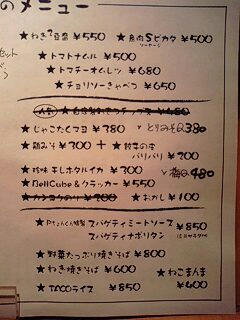 のメニュー
★ねぎ豆腐 ¥550 ★魚肉Sピカタ ¥500
ソーセージ
★トマトナムル ¥500
★トマチーオムレツ ¥680
★チョリソーきゃべつ ¥650
★じゃこたくマヨ ¥380
★鶏みそ ¥300 + ★餃子の皮
パリパリ ¥200
★珍味 干しホタルイカ ¥300
480
★BellCube & クラッカー ¥550
¥200 ★おかし ¥100
特製 スパゲティミートソース ¥850
スパゲティナポリタン
★野菜たっぷり焼きそば ¥800
★ねぎ焼きそば ¥600 ★ねこまんま
★TACOライス ¥850 ¥400